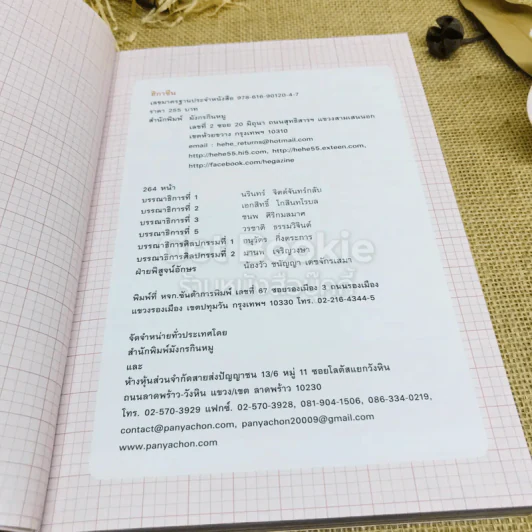 ฮีกาซีน
เลขมาตรฐานประจำหนังสือ 978-616-90120-4-7
ราคา 265 บาท
สำนักพิมพ์ มังกรกินหมู
เลขที่ 2 ซอย 20 มิถุนา ถนนสุทธิสารฯ แขวงสามเสนนอก
เขตห้วยขวาง กรุงเทพฯ 10310
email : hehe_returns@hotmail.com
http://hehe55.hi5.com, http://hehe55.exteen.com,
http://facebook.com/hegazine
264 หน้า
บรรณาธิการที่ 1 นรินทร์ จิตต์จันทร์กลับ
บรรณาธิการที่ 2 เอกสิทธิ์ ไกสินทโรบล
บรรณาธิการที่ 3 ชนพ ศิริกมลมาศ
บรรณาธิการที่ 5 วรชาติ ธรรมวิจินต์
บรรณาธิการศิลปกรรมที่ 1
บรรณาธิการศิลปกรรมที่ 2 มานพ เจริญวงษา
ฝ่ายพิสูจน์อักษร น้องวิว ชนัญญา เตชจักรเสมา
Cookie
ร้านหนังสือตี๋จุ้ย
พิมพ์ที่ หจก.ขันติการพิมพ์ เลขที่ 67 ซอยรองเมือง 3 ถนนรองเมือง
แขวงรองเมือง เขตปทุมวัน กรุงเทพฯ 10330 โทร. 02-216-4344-5
จัดจำหน่ายทั่วประเทศโดย
สำนักพิมพ์มังกรกินหมู
และ
ห้างหุ้นส่วนจำกัดสายส่งปัญญาชน 13/6 หมู่ 11 ซอยโลตัสแยกวังหิน
ถนนลาดพร้าว-วังหิน แขวง/เขต ลาดพร้าว 10230
โทร. 02-570-3929 แฟกซ์. 02-570-3928, 081-904-1506, 086-334-0219,
contact@panyachon.com, panyachon20009@gmail.com
www.panyachon.com